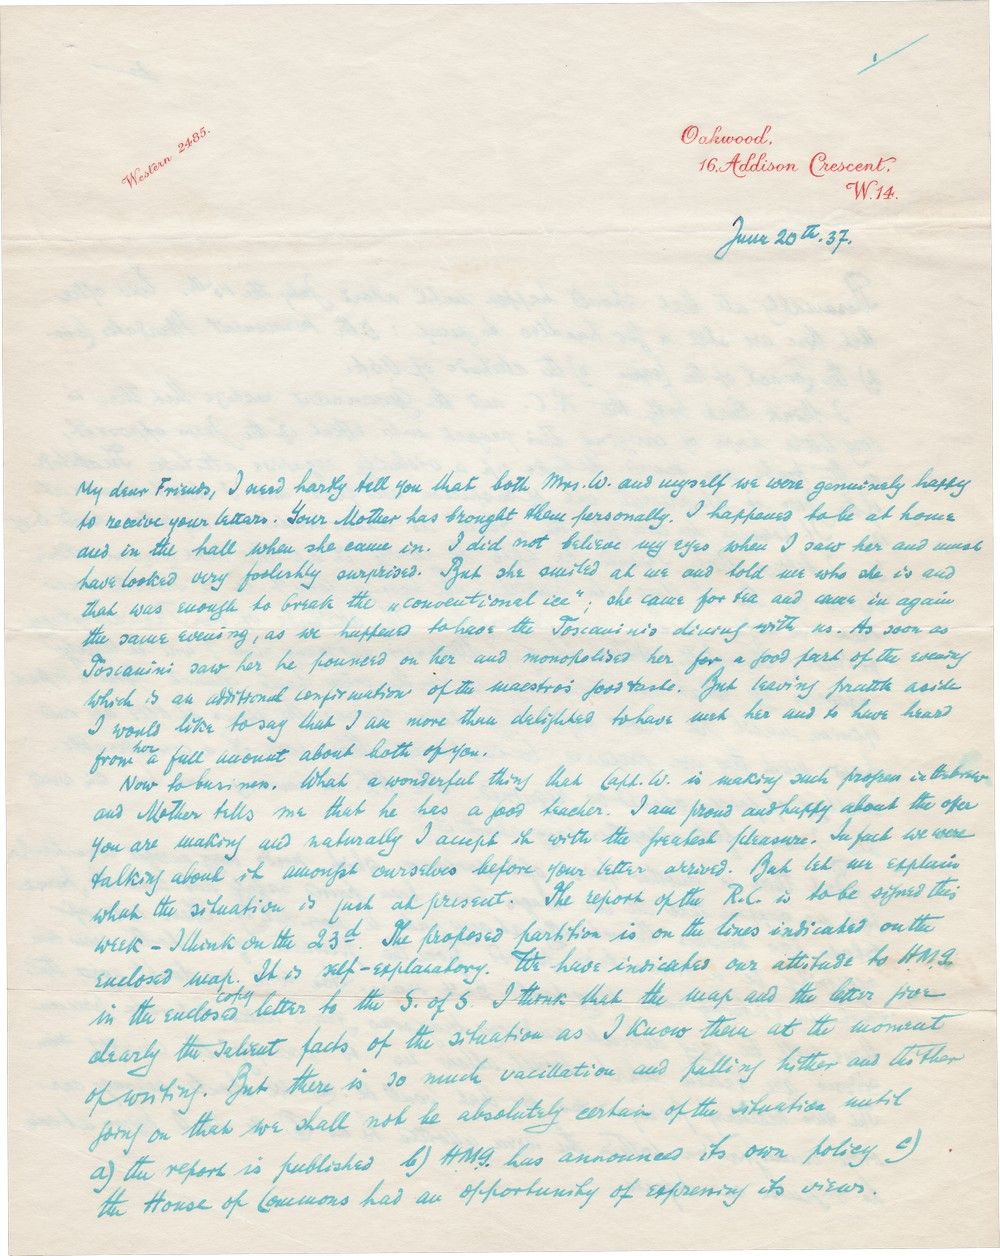 Western 2485.
Oakwood,
16, Addison Crescent,
W.14.
June 20th. 37.
My dear Friends, I need hardly tell you that both Mrs. W. and myself we were genuinely happy
to receive your letters. Your Mother has brought them personally. I happened to be at home
and in the hall when she came in. I did not believe my eyes when I saw her and must
have looked very foolishly surprised. But she smiled at me and told me who she is and
that was enough to break the „conventional ice"; she came for tea and came in again
the same evening, as we happened to have the Toscaninis dining with us. As soon as
Toscanini saw her he pounced on her and monopolised her for a good part of the evening
which is an additional confirmation of the maestro's good taste. But leaving prattle aside
I would like to say that I am more than delighted to have met her and to have heard
from her a full account about both of you.
Now to business. What a wonderful thing that Capt. W. is making such progress in Hebrew
and Mother tells me that he has a good teacher. I am proud and happy about the offer
you are making and naturally I accept it with the greatest pleasure. In fact we were
talking about it amongst ourselves before your letter arrived. But let me explain
what the situation is just at present. The report of the R.C. is to be signed this
week – I think on the 23d. The proposed partition is on the lines indicated on the
enclosed map. It is self-explanatory. We have indicated our attitude to H.M.G.
in the enclosed copy letter to the S. of S. I think that the map and the letter give
clearly the salient facts of the situation as I know them at the moment
of writing. But there is so much vacillation and pulling hither and thither
going on that we shall not be absolutely certain of the situation until
a) the report is published b) H.M.G. has announced its own policy c)
the House of Commons had an opportunity of expressing its views.